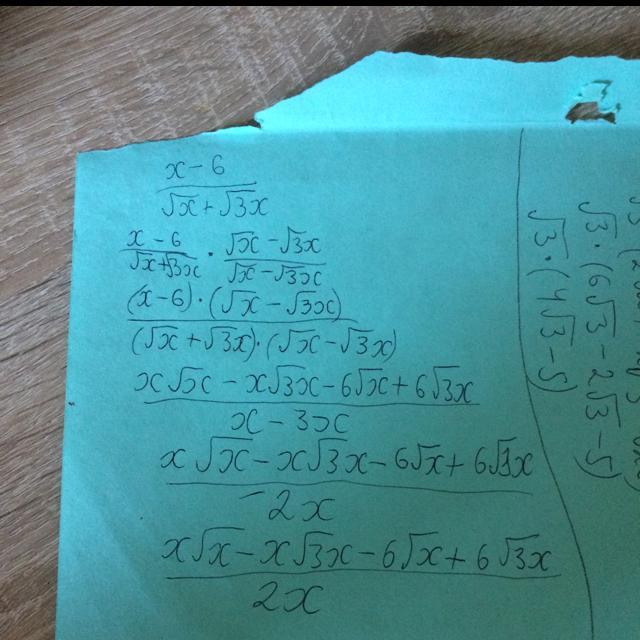 x - 6
√x + √3x
x - 6 · √x - √3x
√x + √3x √x - √3x
(x - 6) · (√x - √3x)
(√x + √3x) · (√x - √3x)
x√x - x√3x - 6√x + 6√3x
x - 3x
x√x - x√3x - 6√x + 6√3x
-2x
x√x - x√3x - 6√x + 6√3x
2x
√3 · (6√3 - 2√3 - 5)
√3 · (4√3 - 5)